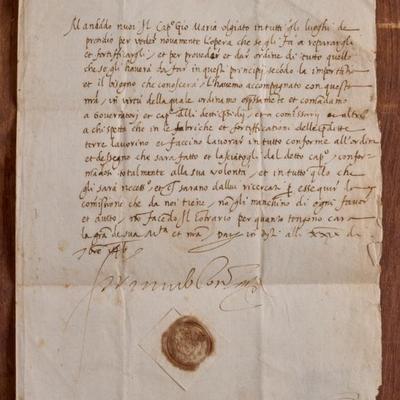 Mandãdo nuoi Il Cap.º Gio Maria olgiato in tutti gli luoghi de
presidio per veder novamente l'opera che se gli fa a repararglj
et fortifficarglj, et per proveder et dar ordine di tutto quello
che se gli haverà da far in questi principij secõdo la importãtia
et il bisogno che conoscerà, l'havemo accompagnato con questa
nrã, in virtù della quale ordinamo et comãdamo
a Governatorj et cap.ⁿⁱ delli et a comissarij et altri
a chi spetta che in le fabriche et fortifficationi delle
terre lavorino et faccino lavorar in tutto conforme all'ordine
et dessegno che sarà fatto et lasciatoglj dal detto cap.º, confor-
mãdosi totalmente alla sua volontà, et in tutto q̃llo che
gli sarà necess.º et saranno da lui ricercatj p̱ essequir la
comissione che da noi tiene, nõ gli manchino di ogni favor
et aiuto, nõ facẽdo Il cõtrario per quanto tengono cara
la grã de sua M.tà et nrã, Dat alli xxix de